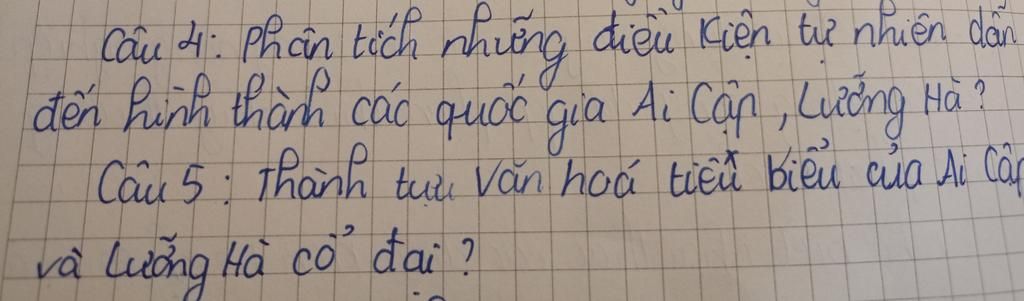 Câu 4: Phân tích những điều kiện tự nhiên dẫn
đến hình thành các quốc gia Ai Cập, Lưỡng Hà?
Câu 5: Thành tựu văn hoá tiêu biểu của Ai Cập
và Lưỡng Hà cổ đại?